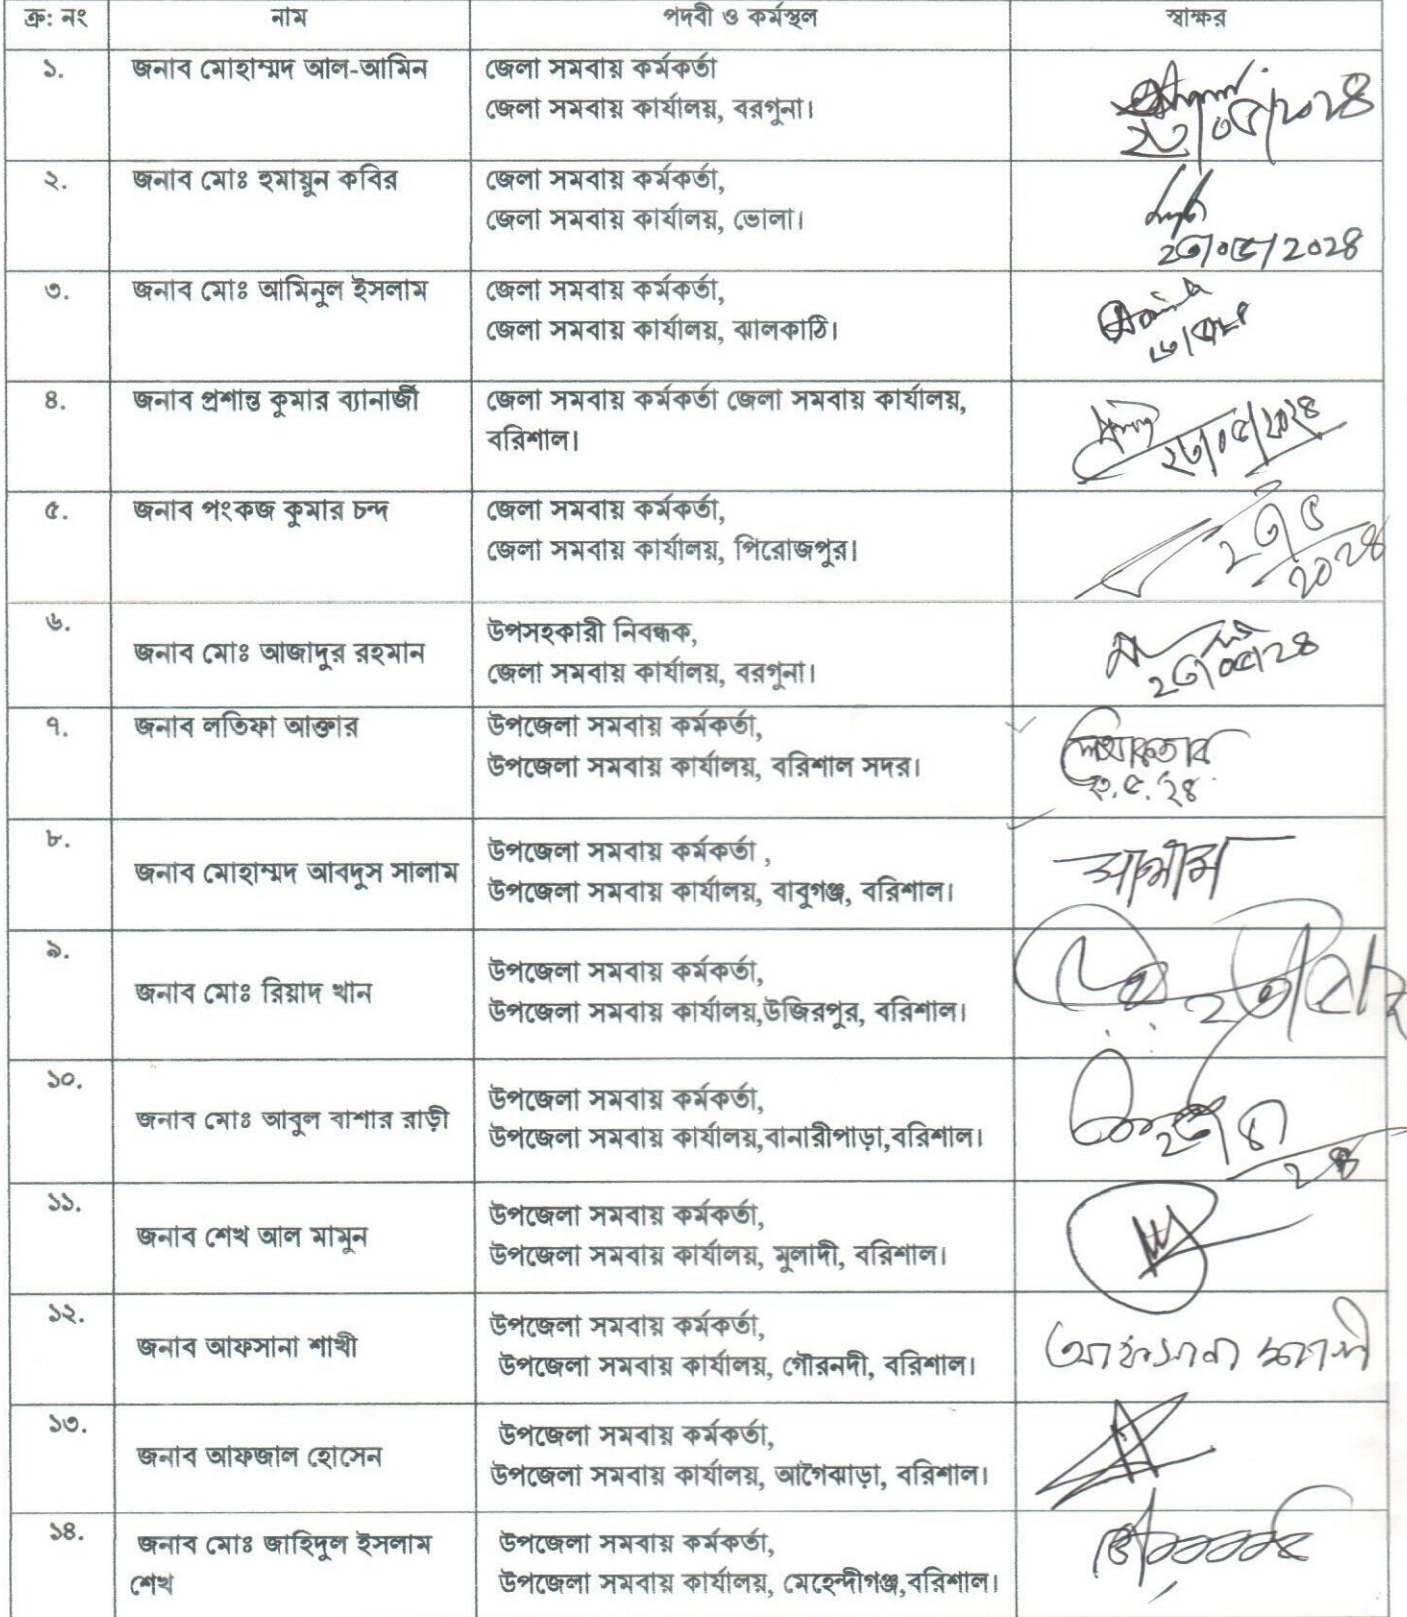 ক্র: নং নাম পদবী ও কর্মস্থল স্বাক্ষর
১. জনাব মোহাম্মদ আল-আমিন জেলা সমবায় কর্মকর্তা
জেলা সমবায় কার্যালয়, বরগুনা।
২৩/০৫/২০২৪
২. জনাব মোঃ হুমায়ুন কবির জেলা সমবায় কর্মকর্তা,
জেলা সমবায় কার্যালয়, ভোলা।
২৩/০৫/২০২৪
৩. জনাব মোঃ আমিনুল ইসলাম জেলা সমবায় কর্মকর্তা,
জেলা সমবায় কার্যালয়, ঝালকাঠি।
৪. জনাব প্রশান্ত কুমার ব্যানার্জী জেলা সমবায় কর্মকর্তা জেলা সমবায় কার্যালয়,
বরিশাল।
২৩/০৫/২০২৪
৫. জনাব পংকজ কুমার চন্দ জেলা সমবায় কর্মকর্তা,
জেলা সমবায় কার্যালয়, পিরোজপুর।
২৩/৫
২০২৪
৬. জনাব মোঃ আজাদুর রহমান উপসহকারী নিবন্ধক,
জেলা সমবায় কার্যালয়, বরগুনা।
২৩/০৫/২৪
৭. জনাব লতিফা আক্তার উপজেলা সমবায় কর্মকর্তা,
উপজেলা সমবায় কার্যালয়, বরিশাল সদর।
৮. জনাব মোহাম্মদ আবদুস সালাম উপজেলা সমবায় কর্মকর্তা ,
উপজেলা সমবায় কার্যালয়, বাবুগঞ্জ, বরিশাল।
সালাম
৯. জনাব মোঃ রিয়াদ খান উপজেলা সমবায় কর্মকর্তা,
উপজেলা সমবায় কার্যালয়,উজিরপুর, বরিশাল।
১০. জনাব মোঃ আবুল বাশার রাড়ী উপজেলা সমবায় কর্মকর্তা,
উপজেলা সমবায় কার্যালয়,বানারীপাড়া,বরিশাল।
১১. জনাব শেখ আল মামুন উপজেলা সমবায় কর্মকর্তা,
উপজেলা সমবায় কার্যালয়, মুলাদী, বরিশাল।
১২. জনাব আফসানা শাখী উপজেলা সমবায় কর্মকর্তা,
উপজেলা সমবায় কার্যালয়, গৌরনদী, বরিশাল।
আফসানা শাখী
১৩. জনাব আফজাল হোসেন উপজেলা সমবায় কর্মকর্তা,
উপজেলা সমবায় কার্যালয়, আগৈঝাড়া, বরিশাল।
১৪. জনাব মোঃ জাহিদুল ইসলাম উপজেলা সমবায় কর্মকর্তা,
শেখ উপজেলা সমবায় কার্যালয়, মেহেন্দীগঞ্জ,বরিশাল।